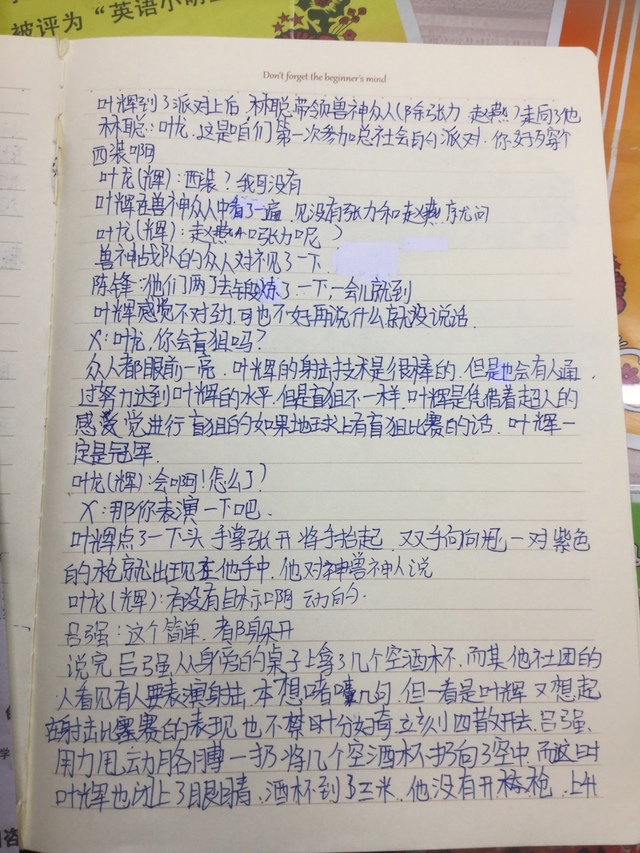 被评为“英语小明星
Don't forget the beginner's mind
叶辉到了派对上后,林聪带领兽神众人(除张力 赵燕)走向了他
林聪:叶龙,这是咱们第一次参加总社会自的派对.你好歹穿个
西装啊
叶龙(辉):西装?我可没有
叶辉在兽神众人中看了一遍,见没有张力和赵燕 就问
叶龙(辉):赵燕和张力呢?
兽神战队的众人对视了一下
陈锋:他们两个去锻炼了一下,一会儿就到
叶辉感觉不对劲,可也不好再说什么就没说话.
X:叶龙,你会盲狙吗?
众人都眼前一亮.叶辉的射击技术是很棒的.但是也会有人通
过努力达到叶辉的水平.但是盲狙不一样.叶辉是凭借着超人的
感觉进行盲狙的如果地球上有盲狙比赛的话.叶辉一
定是冠军.
叶龙(辉):会啊!怎么了?
X:那你表演一下吧.
叶辉点了一下头 手掌张开 将手抬起.双手向向 一对紫色
的枪就出现在他手中.他对神兽神人说
叶龙(辉):有没有目标啊 动的.
吕强:这个简单.都躲开
说完 吕强从身旁的桌子上拿了几个空酒杯.而其他社团的
人看见有人要表演射击,本想嘲几句,但一看是叶辉 又想起
在射击比赛的表现 也不禁十分好奇,立刻四散开去.吕强、
用力甩动胳膊一扔 将几个空酒杯扔向了空中.而这时
叶辉也闭上了眼睛.酒杯到了三米.他没有开枪.上升